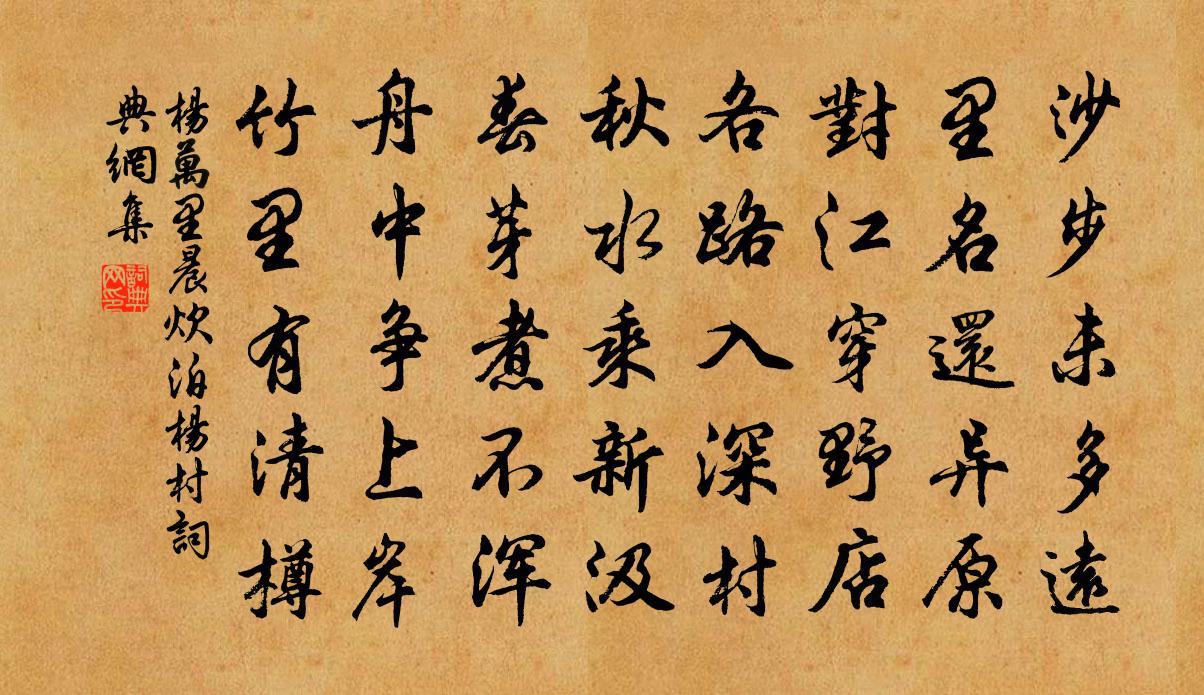 沙步未多遠
里名還异原
對江穿野店
各路入深村
秋水乘新汲
春芽煮不浑
舟中争上岸
竹里有清樽
楊萬里晨炊泊楊村詞
典網集
詞典
网印